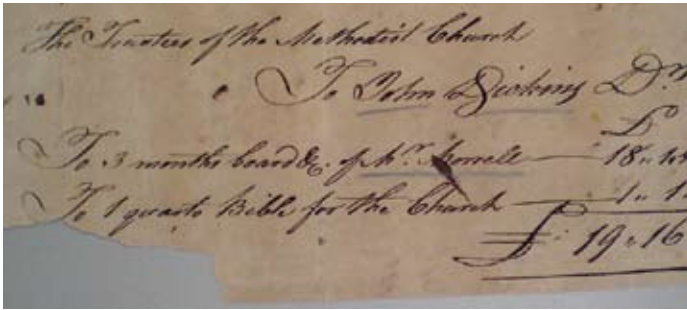 The Trustees of the Methodist Church
16
To John Dickins Dr
£
To 3 months board &c. of Mr. Morrell 18 " 15
To 1 quarto Bible for the Church 1 " 1
£ 19 " 16